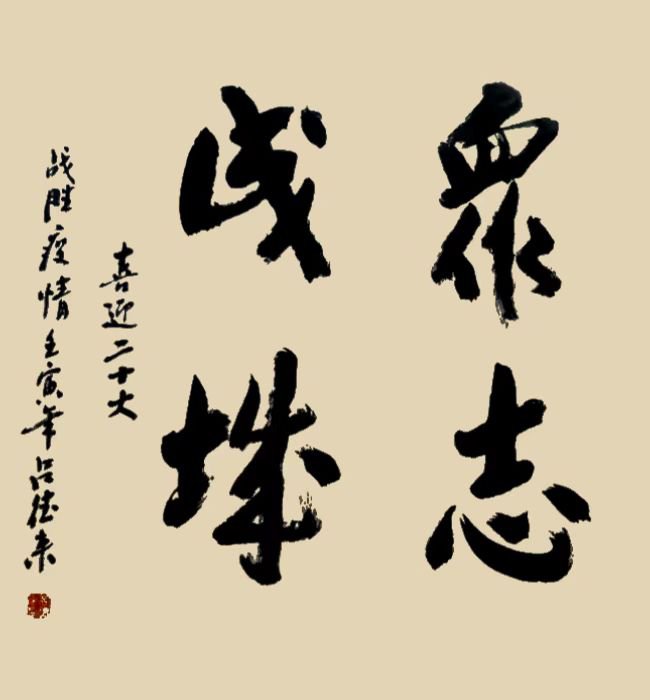 眾志
成城
喜迎二十大
战胜疫情壬寅年吕德来